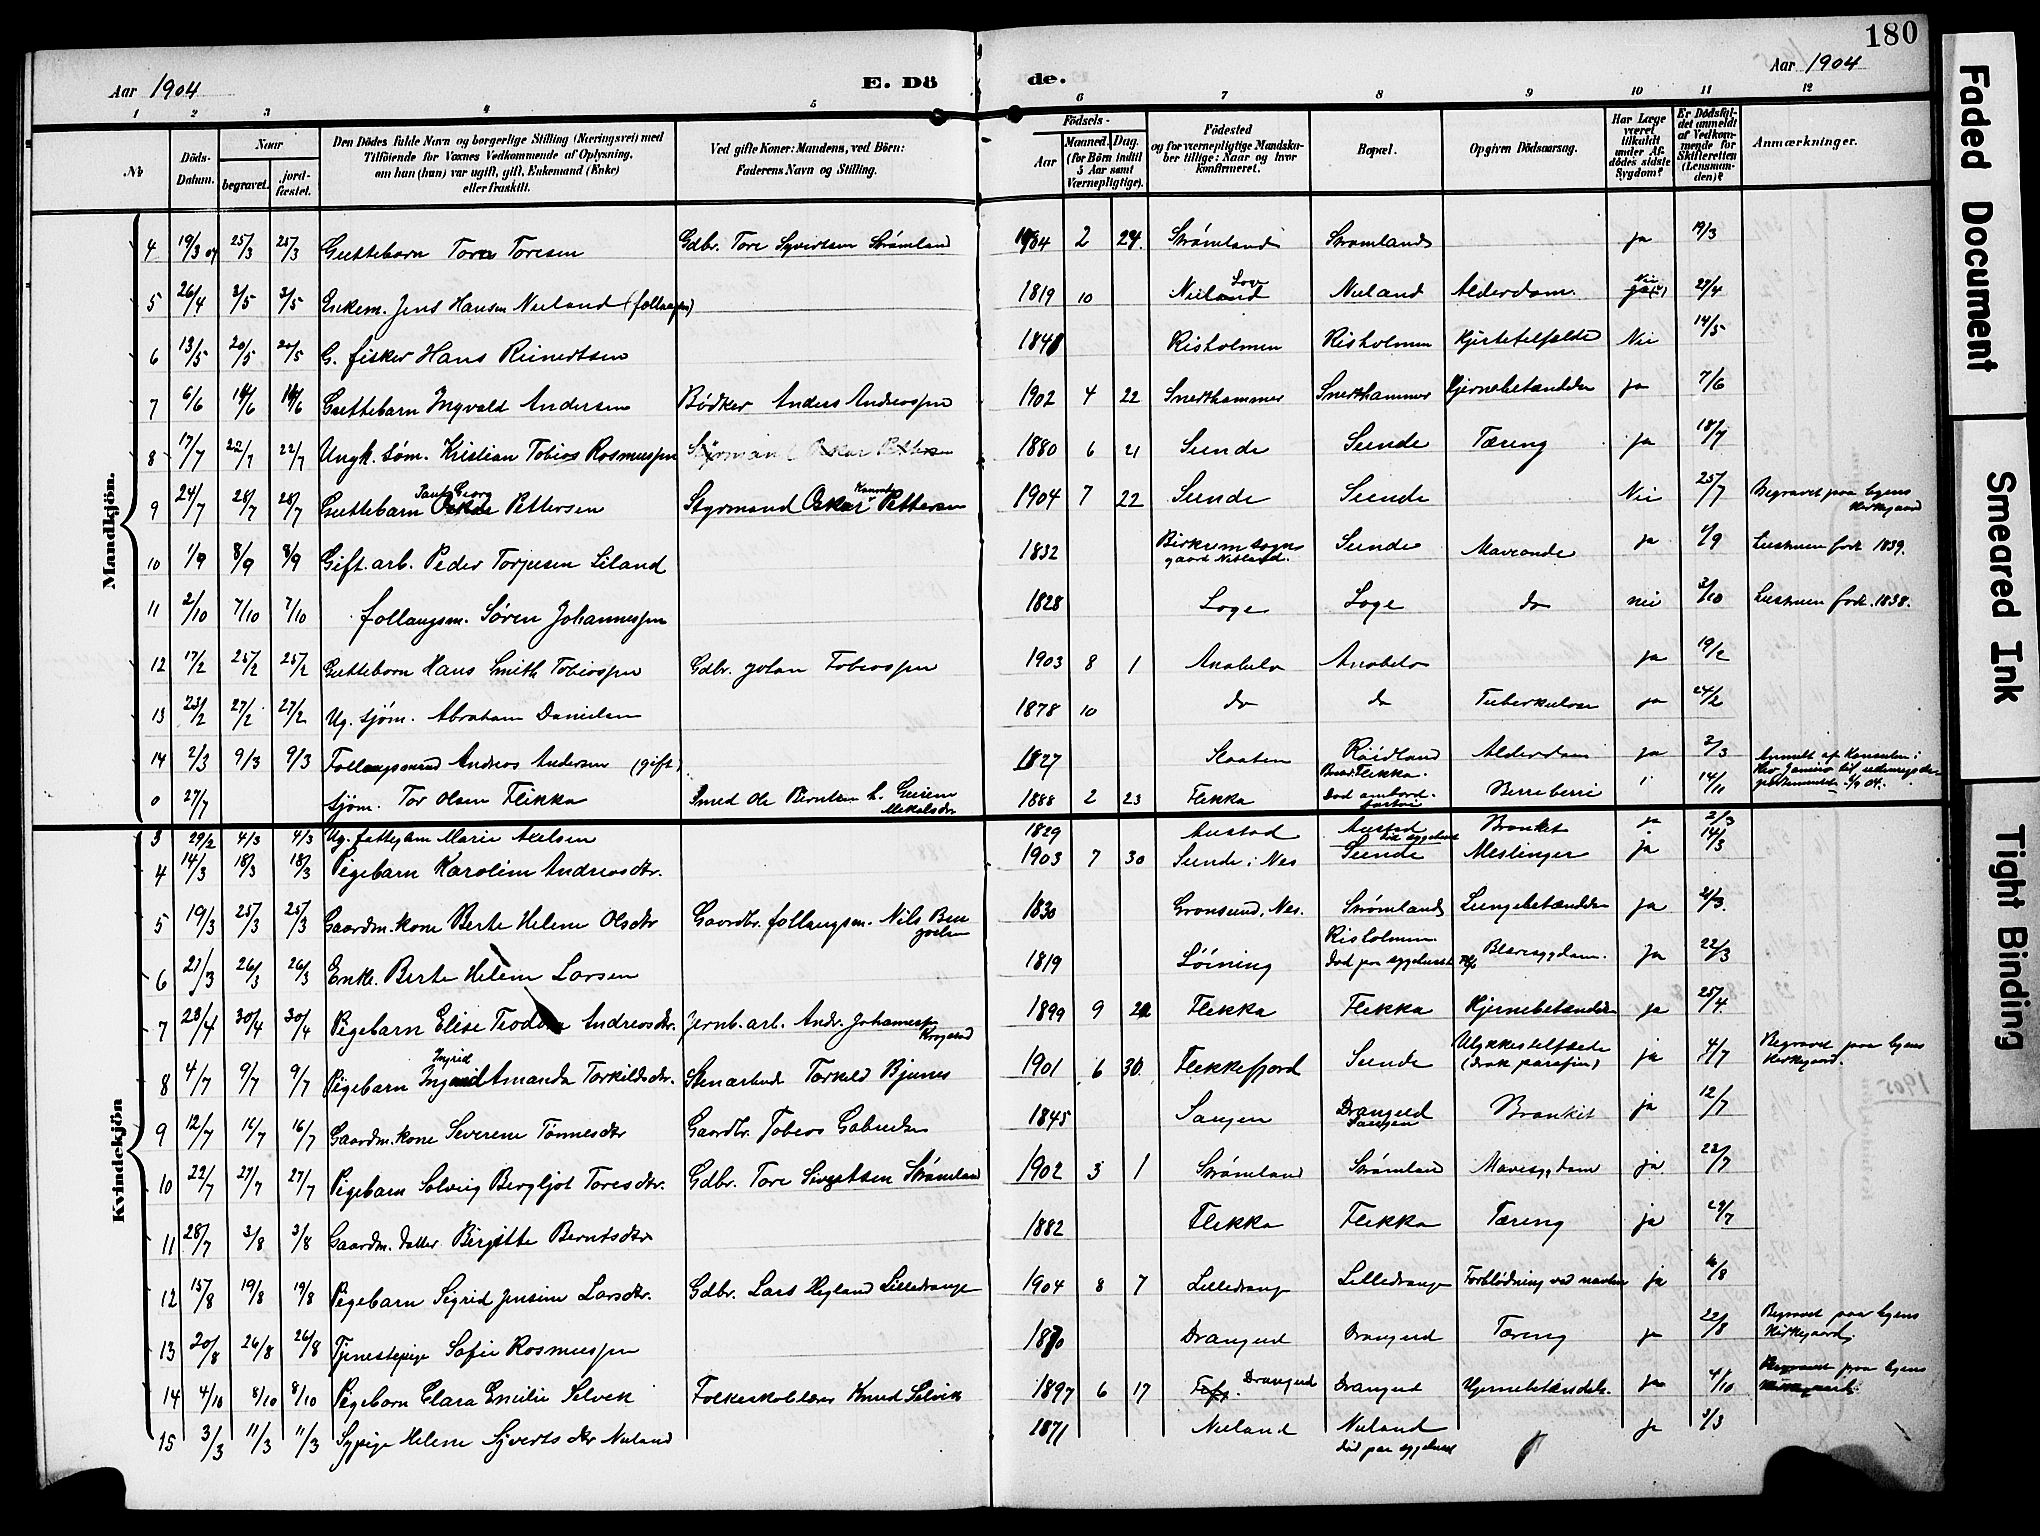 180
Aar 1904
E. Dö
de.
Aar 1904
1 2 3 4 5 6 7 8 9 10 11 12
No
Döds-Datum.
Naar
begravet.
jord-fæstet.
Den Dödes fulde Navn og borgerlige Stilling (Næringsvei) med
Tilföiende for Voxnes Vedkommende af Oplysning,
om han (hun) var ugift, gift, Enkemand (Enke)
eller fraskilt.
Ved gifte Koner: Mandens, ved Börn:
Faderens Navn og Stilling.
Födsels-
Aar
Maaned. Dag.
(for Börn indtil
5 Aar samt
Værnepligtige).
Födested
og for værnepligtige Mandska-
ber tillige: Naar og hvor
konfirmeret.
Bopæl.
Opgiven Dödsaarsag.
Har Læge
været
tilkaldt
under Af-
dödes sidste
Sygdom?
Er Dödsfal-
det anmeldt
af Vedkom-
mende for
Skifteretten
(Lensman-
den)?
Anmærkninger.
Mandkjön.
4 19/3 04 25/3 25/3 Guttebarn Tore Toresen Gdbr. Tore Syvertsen Strømland 1904 2 24. Strømland Strømland ja 19/3
5 26/4 3/5 3/5 Enkem. Jens Hansen Nuland 1819 10 Nuland Nuland Alderdom. 27/4
6 13/5 20/5 20/5 G. fisker Hans Reinertsen 1841 Risholmen Risholmen Hjertetilfælde Nei 14/5
7 6/6 14/6 14/6 Guttebarn Ingvald Andersen Bødker Anders Andreassen 1902 4 22 Snerthammer Snerthammer Hjernebetændelse ja 7/6
8 17/7 22/7 22/7 Ungk. søm. Kristian Tobias Rasmussen Styrmand Oskar Pettersen 1880 6 21 Sunde Sunde Tæring ja 18/7
9 24/7 28/7 28/7 Guttebarn Paul Georg Pettersen Styrmand Oskar Konrad Pettersen 1904 7 22 Sunde Sunde Nei 25/7 Begravet paa byens Kirkegaard
10 1/9 8/9 8/9 Gift. arb. Peder Torjusen Liland 1832 Sunde Maveonde ja 1/9
11 2/10 7/10 7/10 follaugsm. Søren Johannessen 1828 Loge Loge do nei 3/10
12 17/2 25/2 25/2 Guttebarn Hans Smith Tobiassen Gdbr. Johan Tobiassen 1903 8 1 Anabelø Anabelø ja 19/2
13 23/2 27/2 27/2 Ug. sjøm. Abraham Danielsen 1878 10 do do Tuberkulose ja 24/2
14 2/3 9/3 9/3 Follaugsmand Andreas Andersen (gift) 1827 Røidland Alderdom ja 2/3
0 27/7 sjøm. Tor Olsen Flikka Smed Ole Berntsen 1888 2 23 Flikka Flikka. Død ombord Berreberri 14/10
Kvindekjön
3 29/2 4/3 4/3 Ug. fattiglem Marie Axelsen 1829 Austad Austad Bronkit ja 2/3
4 14/3 18/3 18/3 Pigebarn Karoline Andreasdtr. 1903 7 30 Sunde i Nes Sunde Meslinger ja 14/3
5 19/3 25/3 25/3 Gaardm. kone Berte Helene Olsdtr Gaardbr. follaugsm. Nils 1830 Gronsund, Nes. Strømland Lungebetændelse ja 21/3.
6 21/3 26/3 26/3 Enke. Berte Helene Larsen 1819 Løining Risholmen. Død paa sygehuset Blæresygdom. Ja 22/3
7 23/4 30/4 30/4 Pigebarn Elise Teodora Andreasdtr. Jernb. arb. Andr. Johannesen 1899 9 Flikka Flikka Hjernebetændelse ja 25/4.
8 4/7 9/7 9/7 Pigebarn Ingrid Amanda Torkildsdtr. Stenarbeider Torkild Bjunes 1901 6 30. Flekkefjord Sunde Ulykkestilfælde (drak parafin) ja 4/7 Begravet paa byens Kirkegaard.
9 12/7 16/7 16/7 Gaardm. kone Severine Tønnesdtr Gaardbr. Tobias Gabrielsen 1845 Saugen Drangeid Saugen Bronkit ja 12/7
10 22/7 27/7 27/7 Pigebarn Solveig Bergljot Toresdtr. Gdbr. Tore Sivertsen Strømland 1902 3 1 Strømland Strømland Mavesygdom ja 22/7
11 28/7 3/8 3/8 Gaardm. datter Birgitte Berntsdtr 1882 Flikka Flikka Tæring ja 29/7
12 15/8 19/8 19/8 Pigebarn Sigrid Jensine Larsdtr. Gdbr. Lars Hegland Lilledrange 1904 8 7 Lilledrange Lilledrange Forblødning ved navlen ja 16/8
13 20/8 26/8 26/8 Tjenestepige Sofie Rasmussen 1870 Drangeid Drangeid Tæring ja 22/8 Begravet paa byens Kirkegaard.
14 4/10 8/10 8/10 Pigebarn Clara Emilie Selvik Folkeskolelærer Knud Selvik 1897 6 17 Drangeid Drangeid Hjernebetændelse. ja 4/10 Begravet paa byens Kirkegaard.
15 3/3 11/3 11/3 Sypige Helene Sjvertsdtr Nuland 1871 Nuland Nuland død paa sygehuset ja 3/3
Faded Document
Smeared Ink
Tight Binding